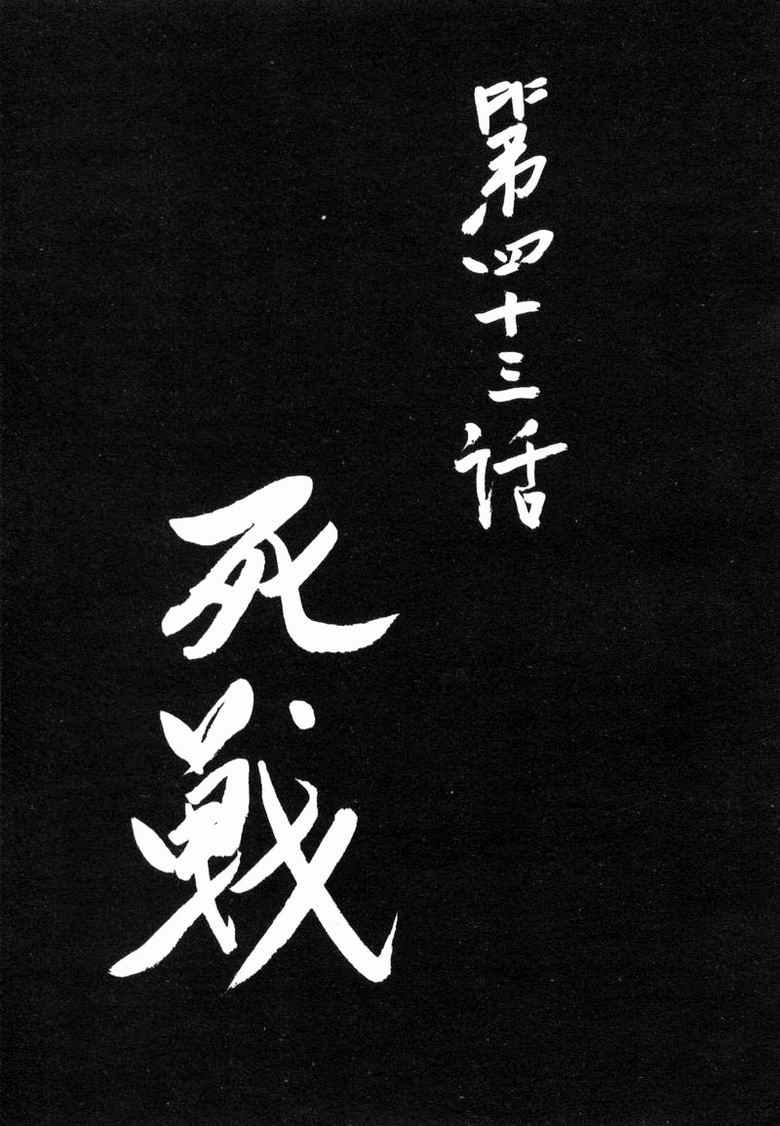 第四十三話
死戦